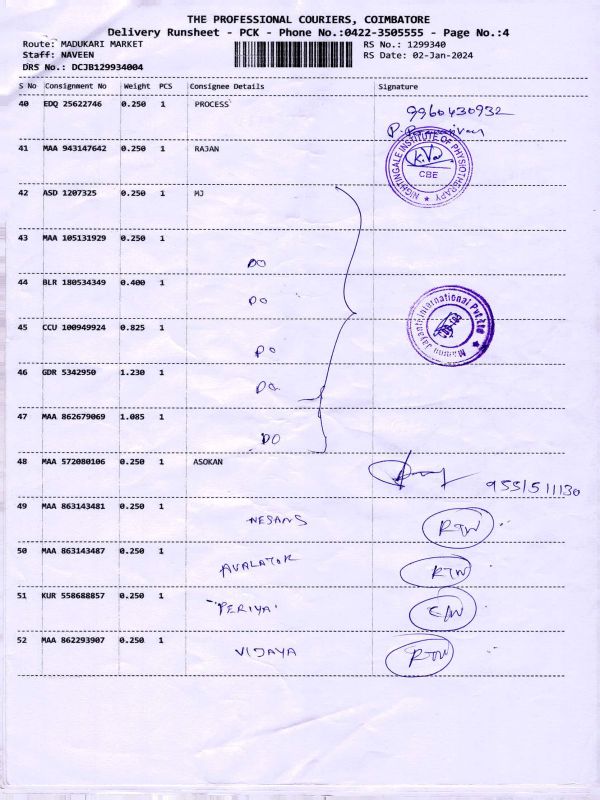 THE PROFESSIONAL COURIERS, COIMBATORE
Delivery Runsheet - PCK - Phone No.:0422-3505555 - Page No.:4
Route: MADUKARI MARKET RS No.: 1299340
Staff: NAVEEN RS Date: 02-Jan-2024
DRS No.: DCJB129934004
S No Consignment No Weight PCS Consignee Details Signature
40 EDQ 25622746 0.250 1 PROCESS 9960430932
41 MAA 943147642 0.250 1 RAJAN
NIGHTINGALE INSTITUTE OF PHYSIOTHERAPY
CBE
42 ASD 1207325 0.250 1 MJ
43 MAA 105131929 0.250 1
DO
44 BLR 180534349 0.400 1
DO
45 CCU 100949924 0.825 1
DO
Jayanti International Pvt.Ltd
46 GDR 5342950 1.230 1
DO
47 MAA 862679069 1.085 1
DO
48 MAA 572080106 0.250 1 ASOKAN
9551511130
49 MAA 863143481 0.250 1
NESANS RTW
50 MAA 863143487 0.250 1
AVALATOR RTW
51 KUR 558688857 0.250 1
PERIYA
52 MAA 862293907 0.250 1
VIJAYA RTW